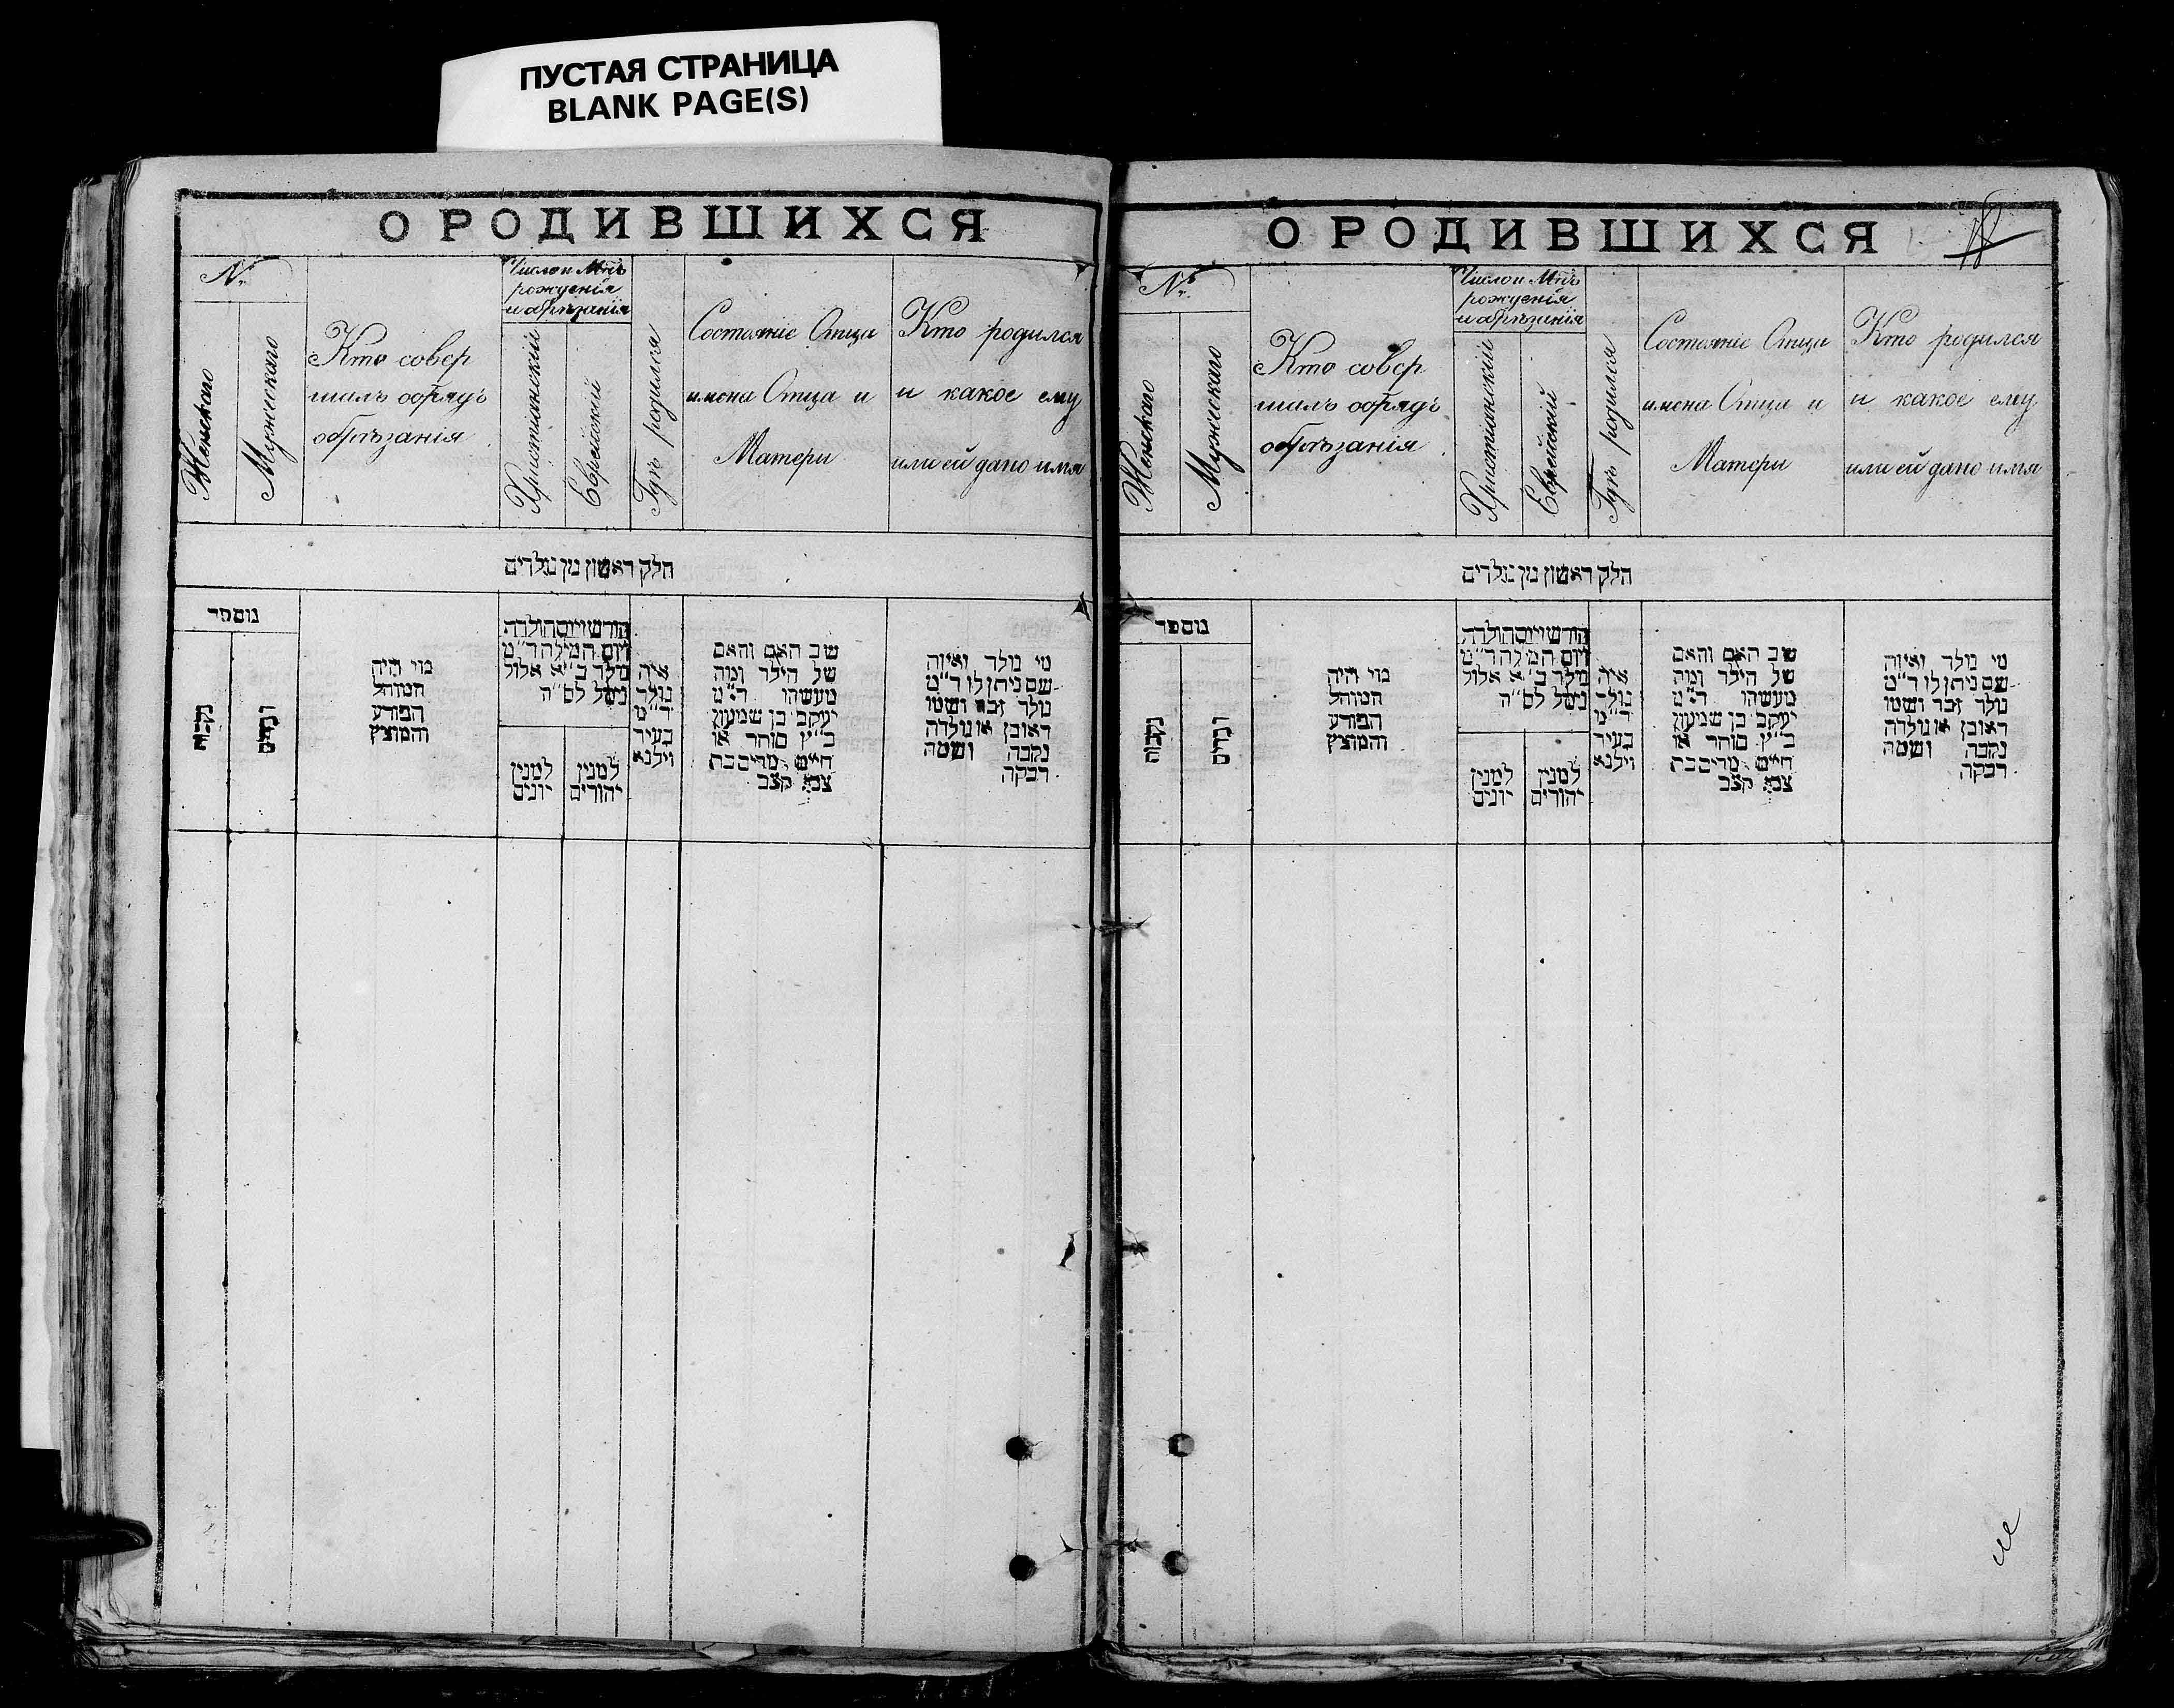 ПУСТАЯ СТРАНИЦА
BLANK PAGE(S)
О РОДИВШИХСЯ
№
Женскаго
Мужескаго
Кто совер
шалъ обрядъ
обрѣзанія
Число и Мць
рожденія
и обрѣзанія
Христіанскій
Еврейскій
Гдѣ родился
Состояніе Отца
имена Отца и
Матери
Кто родился
и какое ему
или ей дано имя
חלק ראשון מן נולדים
מספר
נקבות
זכרים
מי היה
המוהל
הפורע
והמוצץ
חודש ויום הולדה
ויום המילה ד״מ
נולד ב״א אלול
נימל לס״ה
למנין
יונים
למנין
יהודים
איה
נולד
ד״מ
בעיר
וילנא
שם האב והאם
של הילד ומה
מעשהו ד״מ
יעקב בן שמעון
כ״ץ סוחר או
חייט מרים בת
צבי קצב
מי נולד ואיזה
שם ניתן לו ד״מ
נולד זכר ושמו
ראובן או נולדה
נקבה ושמה
רבקה
О РОДИВШИХСЯ
№
Женскаго
Мужескаго
Кто совер
шалъ обрядъ
обрѣзанія
Число и Мць
рожденія
и обрѣзанія
Христіанскій
Еврейскій
Гдѣ родился
Состояніе Отца
имена Отца и
Матери
Кто родился
и какое ему
или ей дано имя
חלק ראשון מן נולדים
מספר
נקבות
זכרים
מי היה
המוהל
הפורע
והמוצץ
חודש ויום הולדה
ויום המילה ד״מ
נולד ב״א אלול
נימל לס״ה
למנין
יונים
למנין
יהודים
איה
נולד
ד״מ
בעיר
וילנא
שם האב והאם
של הילד ומה
מעשהו ד״מ
יעקב בן שמעון
כ״ץ סוחר או
חייט מרים בת
צבי קצב
מי נולד ואיזה
שם ניתן לו ד״מ
נולד זכר ושמו
ראובן או נולדה
נקבה ושמה
רבקה